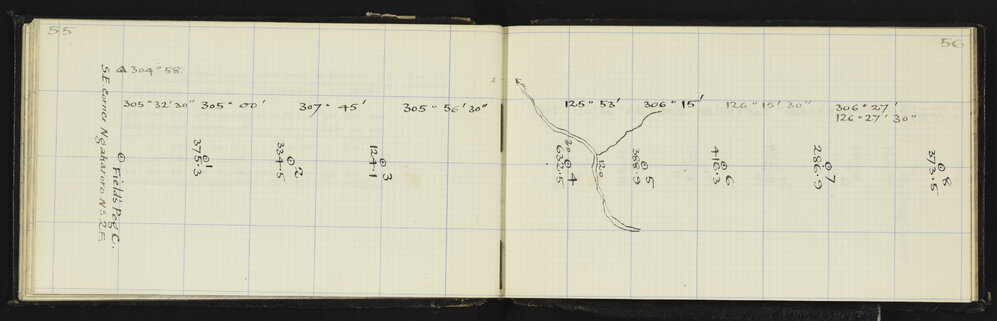 55
△ 304° 58'
305° 32' 30" 305° 00' 307° 45' 305° 56' 30"
S.E. Corner Ngakaroro No. 2F.
⊙ Field's Peg C.
⊙ 1
375.3
⊙ 2
334.5
⊙ 3
124.1
56
125° 53' 306° 15' 126° 15' 30" 306° 27'
126° 27' 30"
20
⊙ 4
632.5
120
⊙ 5
388.9
⊙ 6
416.3
⊙ 7
286.9
⊙ 8
373.5